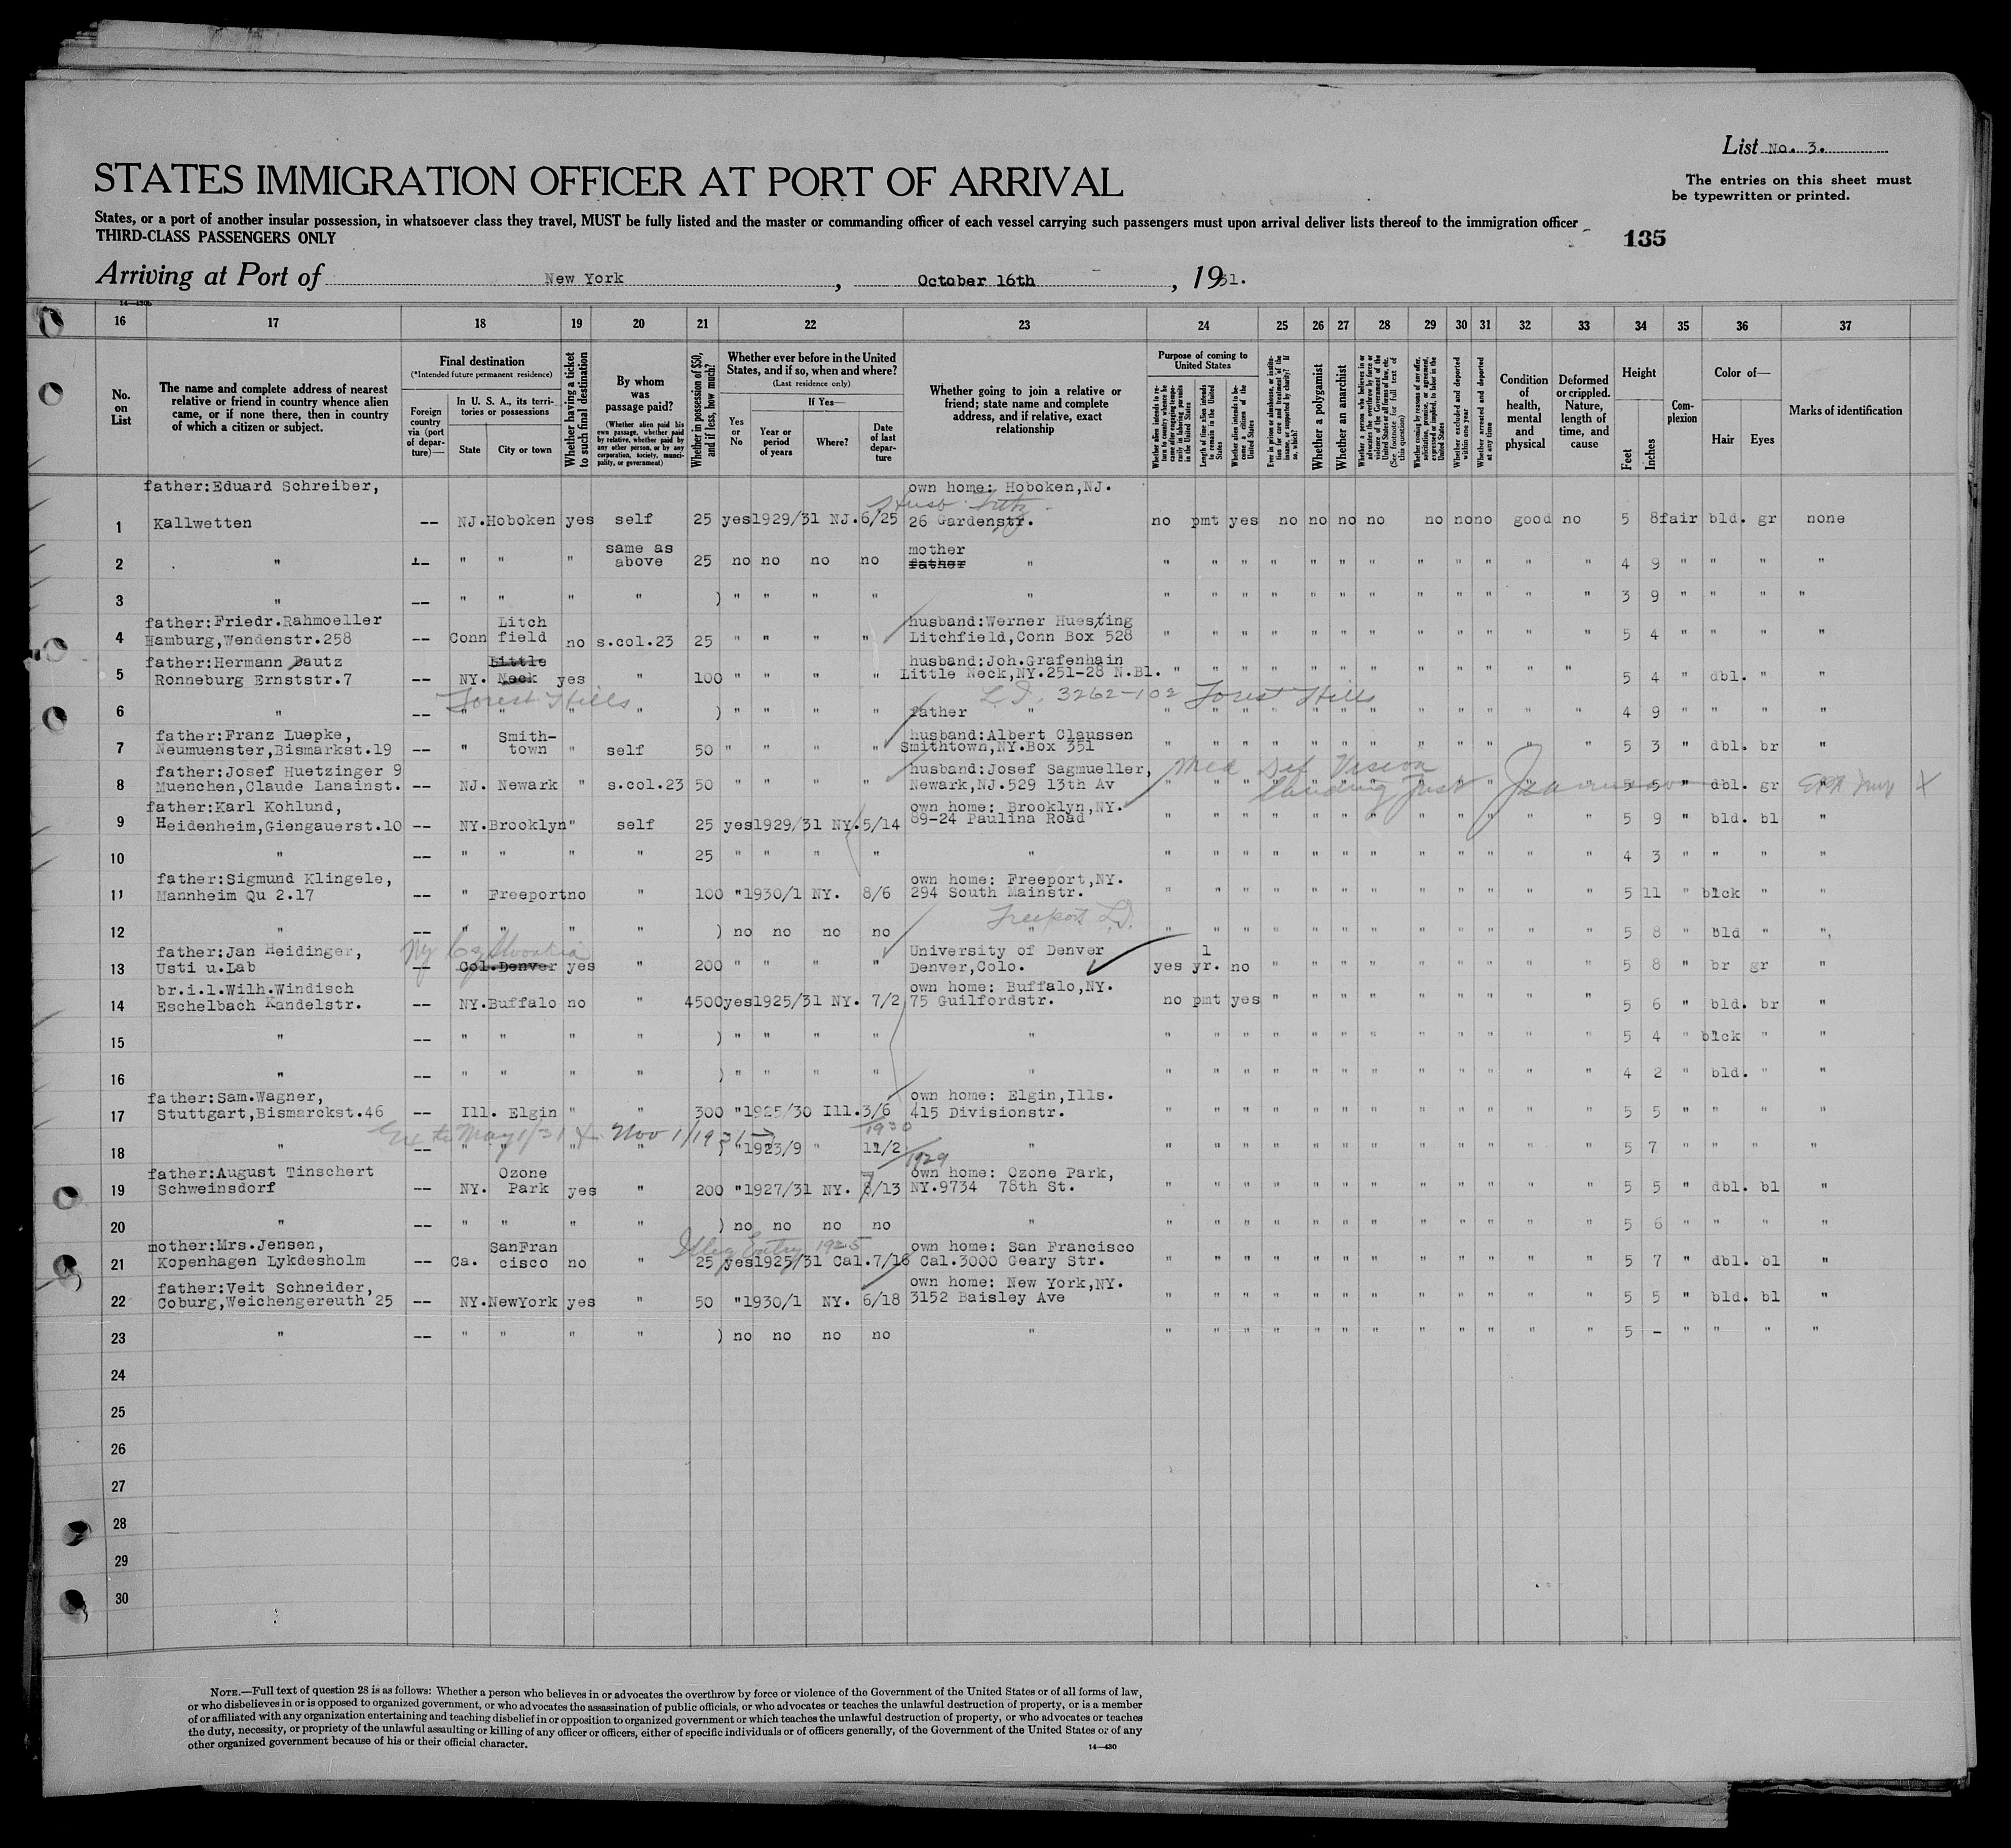 List No. 3.
STATES IMMIGRATION OFFICER AT PORT OF ARRIVAL
The entries on this sheet must
be typewritten or printed.
States, or a port of another insular possession, in whatsoever class they travel, MUST be fully listed and the master or commanding officer of each vessel carrying such passengers must upon arrival deliver lists thereof to the immigration officer
THIRD-CLASS PASSENGERS ONLY
135
Arriving at Port of New York, October 16th, 1931.
14-430b
16 17 18 19 20 21 22 23 24 25 26 27 28 29 30 31 32 33 34 35 36 37
No. on List
The name and complete address of nearest relative or friend in country whence alien came, or if none there, then in country of which a citizen or subject.
Final destination
(*Intended future permanent residence)
Foreign country via (port of departure)—
In U. S. A., its territories or possessions
State
City or town
Whether having a ticket to such final destination
By whom was passage paid?
(Whether alien paid his own passage, whether paid by relative, whether paid by any other person, or by any corporation, society, municipality, or government)
Whether in possession of $50, and if less, how much?
Whether ever before in the United States, and if so, when and where?
(Last residence only)
Yes or No
If Yes—
Year or period of years
Where?
Date of last departure
Whether going to join a relative or friend; state name and complete address, and if relative, exact relationship
Purpose of coming to United States
Whether alien intends to return to country whence he came after engaging temporarily in laboring pursuits in the United States
Length of time alien intends to remain in the United States
Whether alien intends to become a citizen of the United States
Ever in prison or almshouse, or institution for care and treatment of the insane, or supported by charity? If so, which?
Whether a polygamist
Whether an anarchist
Whether a person who believes in or advocates the overthrow by force or violence of the Government of the United States or all forms of law, etc. (See footnote for full text of this question)
Whether coming by reason of any offer, solicitation, promise, or agreement, expressed or implied, to labor in the United States
Whether excluded and deported within one year
Whether arrested and deported at any time
Condition of health, mental and physical
Deformed or crippled. Nature, length of time, and cause
Height
Feet
Inches
Complexion
Color of—
Hair
Eyes
Marks of identification
father:Eduard Schreiber, own home: Hoboken,NJ.
1 Kallwetten -- NJ. Hoboken yes self 25 yes 1929/31 NJ. 6/25 26 Gardenstr. no pmt yes no no no no no no no good no 5 8 fair bld. gr none
same as mother
2 " -- " " " above 25 no no no no father " " " " " " " " " " " " " 4 9 " " " "
3 " -- " " " " ) " " " " " " " " " " " " " " " " " 3 9 " " " "
father:Friedr.Rahmoeller Litch husband:Werner Huesting
4 Hamburg,Wendenstr.258 -- Conn field no s.col.23 25 " " " " Litchfield,Conn Box 528 " " " " " " " " " " " " 5 4 " " " "
father:Hermann Dautz Little husband:Joh.Grafenhain
5 Ronneburg Ernststr.7 -- NY. Neck yes " 100 " " " " Little Neck,NY.251-28 N.Bl. " " " " " " " " " " " " 5 4 " dbl. " "
Forest Hills L.I. 3262-102 Forest Hills
6 " -- " " " " ) " " " " father " " " " " " " " " " " " " 4 9 " " " "
father:Franz Luepke, Smith- husband:Albert Claussen
7 Neumuenster,Bismarkst.19 -- " town " self 50 " " " " Smithtown,NY.Box 351 " " " " " " " " " " " " 5 3 " dbl. br "
father:Josef Huetzinger 9 husband:Josef Sagmueller, Med Vision
8 Muenchen,Claude Lanainst. -- NJ. Newark " s.col.23 50 " " " " Newark,NJ.529 13th Av " " " " " " " " " " " " 5 5 " dbl. gr "
father:Karl Kohlund, own home: Brooklyn,NY.
9 Heidenheim,Giengauerst.10 -- NY. Brooklyn " self 25 yes 1929/31 NY. 5/14 89-24 Paulina Road " " " " " " " " " " " " 5 9 " bld. bl "
10 " -- " " " " 25 " " " " " " " " " " " " " " " " " 4 3 " " " "
father:Sigmund Klingele, own home: Freeport,NY.
11 Mannheim Qu 2.17 -- " Freeport no " 100 " 1930/1 NY. 8/6 294 South Mainstr. " " " " " " " " " " " " 5 11 " blck " "
Freeport L.I.
12 " -- " " " " ) no no no no " " " " " " " " " " " " " 5 8 " bld " "
father:Jan Heidinger, University of Denver 1
13 Usti u.Lab -- Col. Denver yes " 200 " " " " Denver,Colo. yes yr. no " " " " " " " " " 5 8 " br gr "
br.i.l.Wilh.Windisch own home: Buffalo,NY.
14 Eschelbach Kandelstr. -- NY. Buffalo no " 4500 yes 1925/31 NY. 7/2 75 Guilfordstr. no pmt yes " " " " " " " " " 5 6 " bld. br "
15 " -- " " " " ) " " " " " " " " " " " " " " " " 5 4 " blck " "
16 " -- " " " " ) " " " " " " " " " " " " " " " " 4 2 " bld. " "
father:Sam.Wagner, own home: Elgin,Ills.
17 Stuttgart,Bismarckst.46 -- Ill. Elgin " " 300 " 1925/30 Ill. 3/6 415 Divisionstr. " " " " " " " " " " " " 5 5 " " " "
to May 1/31 Nov 1/1931 → 1930
18 " -- " " " " ) " 1923/9 " 11/2 " " " " " " " " " " " " " 5 7 " " " "
1929
father:August Tinschert Ozone own home: Ozone Park,
19 Schweinsdorf -- NY. Park yes " 200 " 1927/31 NY. 8/13 NY.9734 78th St. " " " " " " " " " " " " 5 5 " dbl. bl "
20 " -- " " " " ) no no no no " " " " " " " " " " " " " 5 6 " " " "
mother:Mrs.Jensen, SanFran Illeg Entry 1925 own home: San Francisco
21 Kopenhagen Lykdesholm -- Ca. cisco no " 25 yes 1925/31 Cal. 7/16 Cal.3000 Geary Str. " " " " " " " " " " " " 5 7 " dbl. bl "
father:Veit Schneider, own home: New York,NY.
22 Coburg,Weichengereuth 25 -- NY. NewYork yes " 50 " 1930/1 NY. 6/18 3152 Baisley Ave " " " " " " " " " " " " 5 5 " bld. bl "
23 " -- " " " " ) no no no no " " " " " " " " " " " " " 5 - " " " "
24
25
26
27
28
29
30
NOTE.—Full text of question 28 is as follows: Whether a person who believes in or advocates the overthrow by force or violence of the Government of the United States or of all forms of law,
or who disbelieves in or is opposed to organized government, or who advocates the assassination of public officials, or who advocates or teaches the unlawful destruction of property, or is a member
of or affiliated with any organization entertaining and teaching disbelief in or opposition to organized government or which teaches the unlawful destruction of property, or who advocates or teaches
the duty, necessity, or propriety of the unlawful assaulting or killing of any officer or officers, either of specific individuals or of officers generally, of the Government of the United States or of any
other organized government because of his or their official character.
14-430